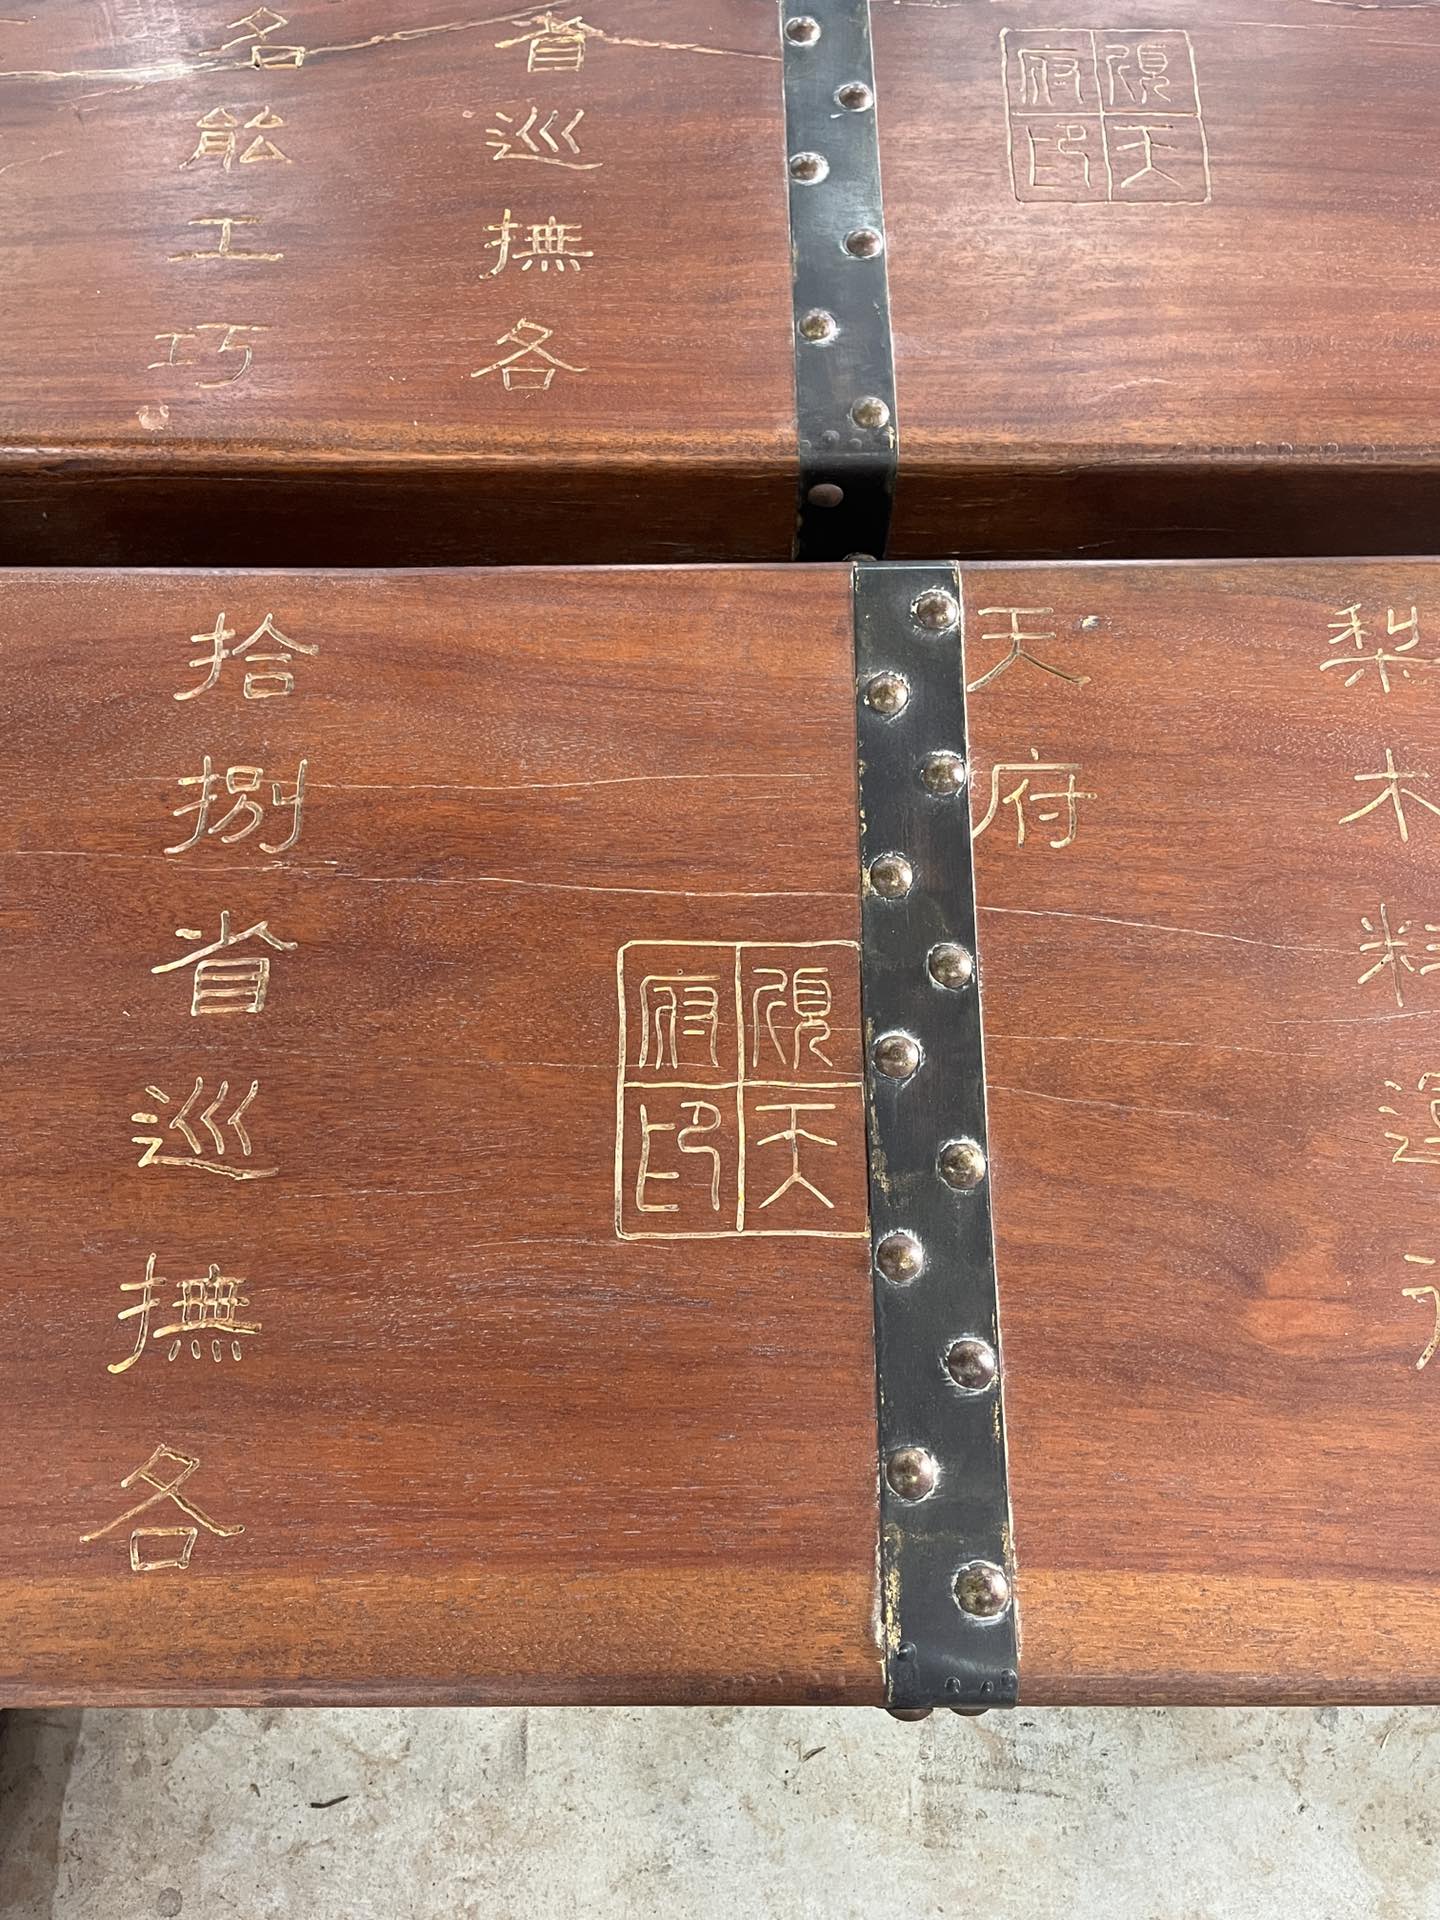 順天府印
省巡撫各
名能工巧
梨木料
天府
順天府印
拾捌省巡撫各